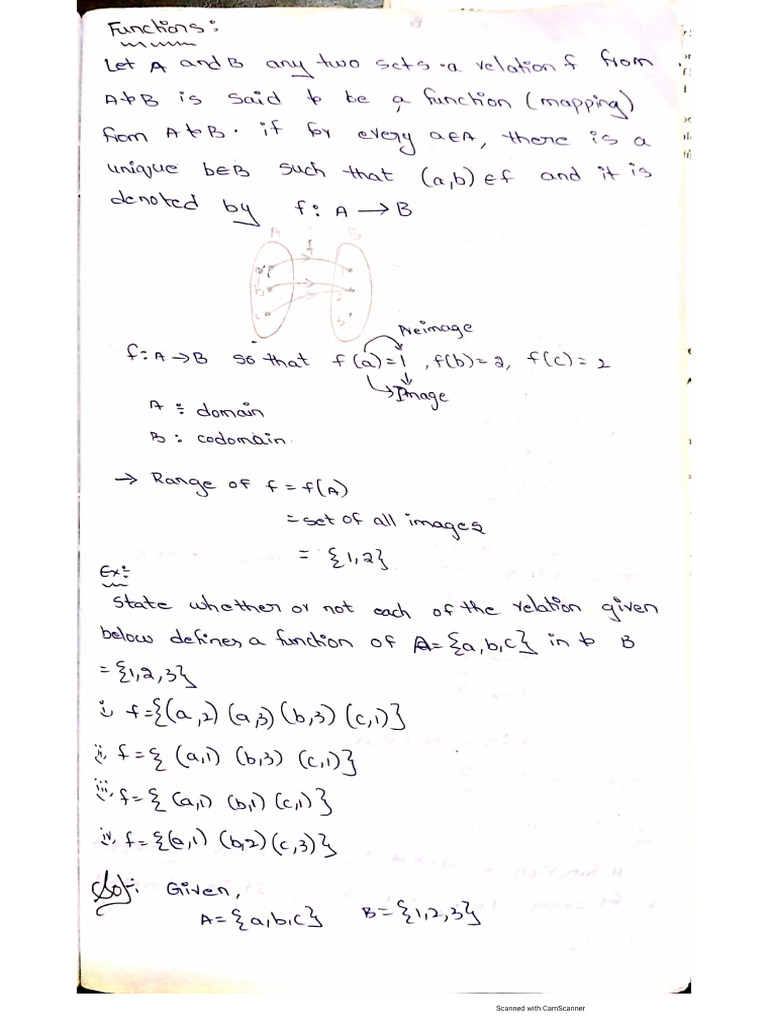 Functions:
Let A and B any two sets. a relation f from
A to B is said to be a function (mapping)
from A to B. if for every a∈A, there is a
unique b∈B such that (a,b) ∈f and it is
denoted by f: A → B
A f B
a 1
b 2
c 3
Preimage
f: A→B so that f(a)=1, f(b)=2, f(c)=2
Image
A : domain
B : codomain.
→ Range of f = f(A)
= set of all images
= {1,2}
Ex:
State whether or not each of the relation given
below defines a function of A={a,b,c} in to B
= {1,2,3}
i, f={(a,2) (a,3) (b,3) (c,1)}
ii, f={ (a,1) (b,3) (c,1)}
iii, f={ (a,1) (b,1) (c,1)}
iv, f={(a,1) (b,2) (c,3)}
Sol: Given,
A={a,b,c} B={1,2,3}
Scanned with CamScanner